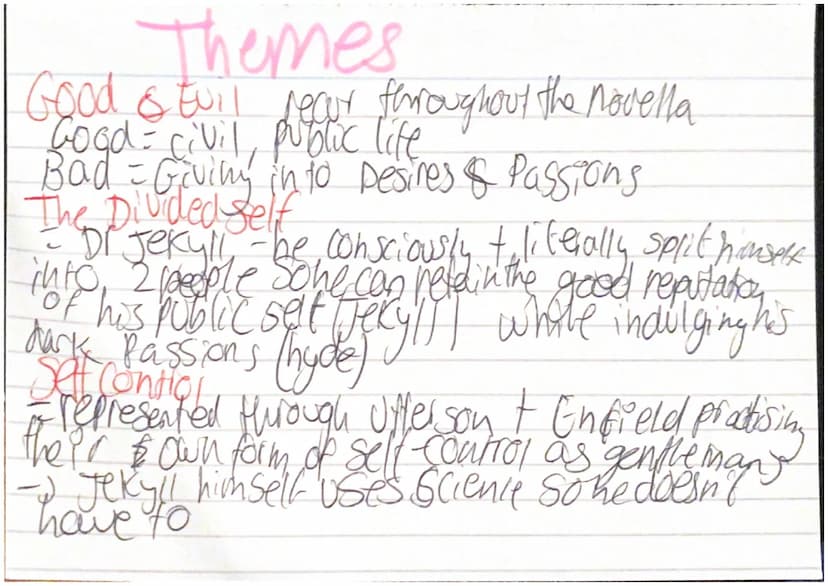 Themes
Good & Evil recur throughout the novella
Good = civil, public life
Bad = Giving into Desires & Passions
The Divided self
= Dr Jekyll - he consciously + literally split himself
into 2 people so he can retain the good reputation
of his public self (Jekyll) while indulging his
dark passions (hyde)
Self Control
- represented through Utterson + Enfield practising
their own form of self-control as gentlemans
→ Jekyll himself uses Science so he doesn't
have to